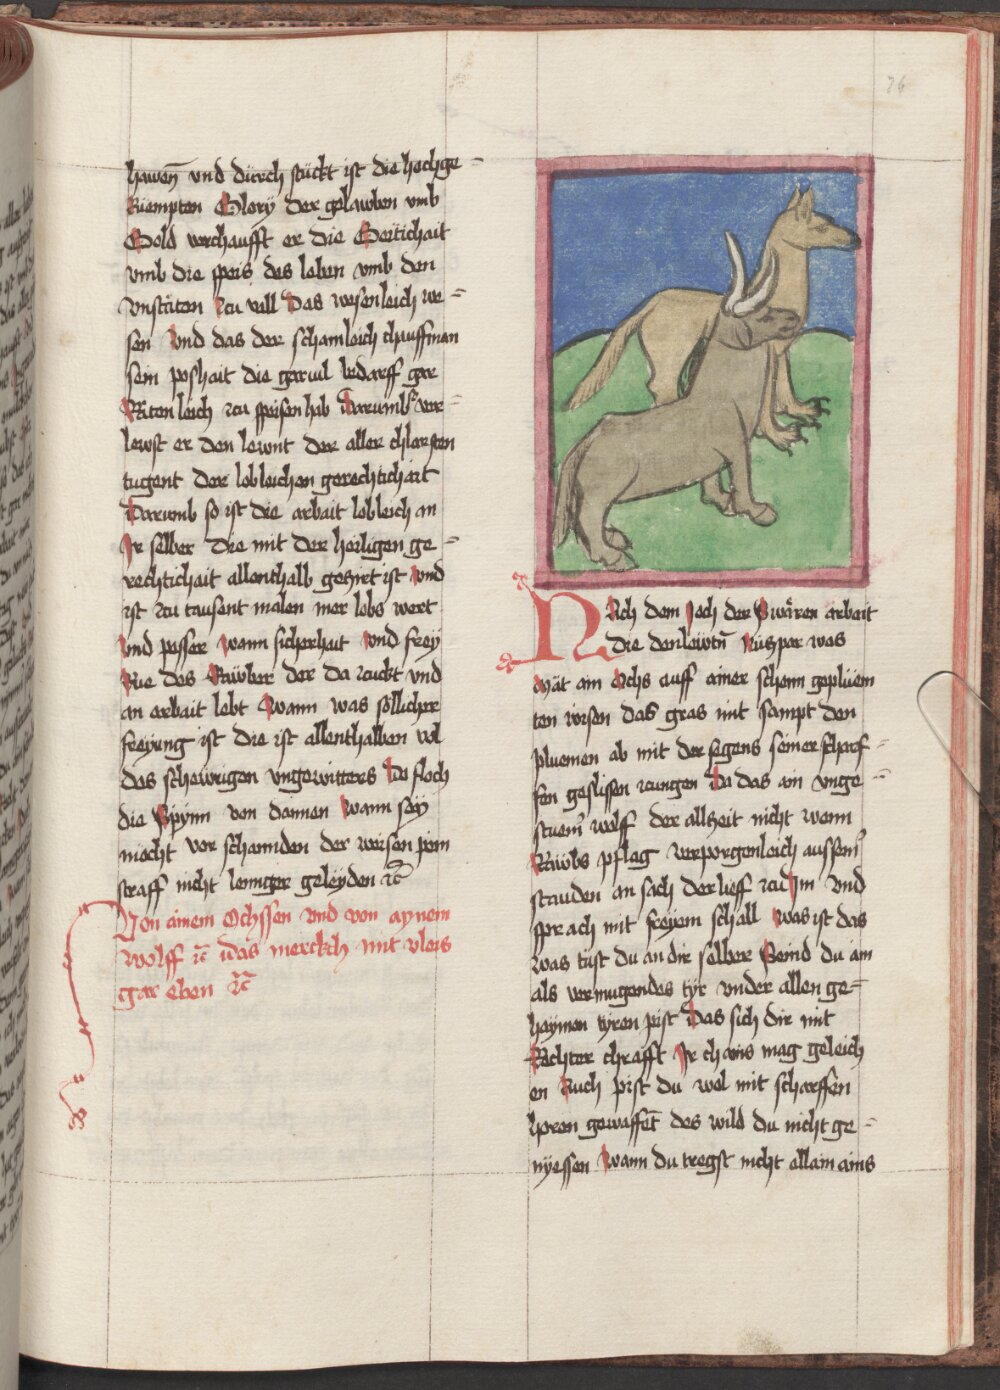 hawen̄ vnd durch stückt ist die hochge=
Ruempten Glory der gelawben vmb
Gold verchaufft er die Geitichait
vmb die speis des leben vmb den
vnstäten zcu vall Das wesenleich we=
sen Vnd das der schamleich chauffman
sein poshait die garuil bedarff gar
leich zcu speisen hab Darumb ver=
lewst er den lewnt der aller chlersten
tugent der lobleichen gerechtichait
Darumb so ist die arbait lobleich an
Ir selber die mit der heiligen ge=
rechtichait allenthalb geziret ist Vnd
ist zcu tausent malen mer lobs wert
Vnd pesser wann sicherhait Vnd frey
Rue des Rawber der da zuckt vnd
an arbait lebt Wann was söllicher
freyung ist die ist allenthalben vol
des schewrigen vngewitters Da floch
die Spynn von dannen Wann sey
mocht vor schannden der weisen pein
straff nicht lennger geleyden ꝛc̄
Von ainem Ochssen vnd von aynem
Wolff ꝛc̄ Das merckch mit vleis
gar eben ꝛc̄
76
NAch dem Joch der Swären arbait
die
mät ain Ochs auff ainer schonn geplüem
ten wisen das gras mit sampt den
pluemen ab mit der segens seiner scherf=
fen geslissen zcungen Da das ain vnge=
stuem̄ wolff der allzeit nicht wenn
Rawbs pflag verporgenleich ausser
stauden an sach der lieff zcu Im Vnd
sprach mit freyem schall Was ist das
was tüst du an dir selber Seind du ain
als vermugendes tyr vnder allen ge=
haymen tyren pist Das sich dir mit
Rechter chrafft Ir chains mag geleich
en Auch pist du wol mit scharffen
horen gewaffet des wild du nicht ge=
nyessen Wann du tregst nicht allain ains